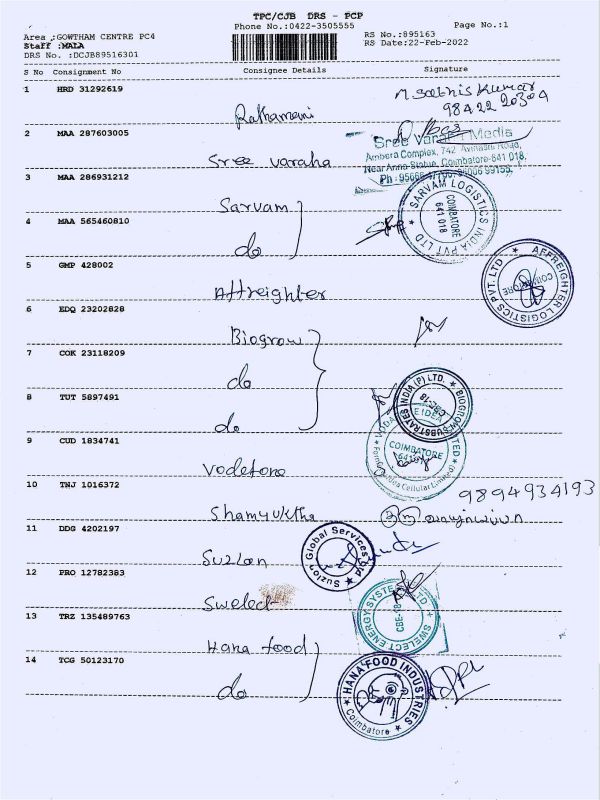 TPC/CJB DRS - PCP
Phone No.:0422-3505555
Page No.:1
Area :GOWTHAM CENTRE PC4
RS No.:895163
Staff :MALA
RS Date:22-Feb-2022
DRS No. :DCJB89516301
S No Consignment No Consignee Details Signature
1 HRD 31292619
Rathamani
98422 20304
2 MAA 287603005
Sree varaha
Sree Varaha Media
Ambera Complex, 742, Avinashi Road,
Near Anna Statue, Coimbatore-641 018.
3 MAA 286931212
Sarvam
SARVAM LOGISTICS INDIA PVT LTD
COIMBATORE
641 018
4 MAA 565460810
do
5 GMP 428002
Affreighter
AFFREIGHTER LOGISTICS PVT. LTD
COIMBATORE
6 EDQ 23202828
Biogrow
7 COK 23118209
do
BIOGROW SUBSTRATES INDIA (P) LTD.
CBE-18
8 TUT 5897491
do
9 CUD 1834741
Vodefone
COIMBATORE
10 TNJ 1016372
9894934193
Shamyuktha
11 DDG 4202197
Suzlon
Suzlon Global Services Ltd
12 PRO 12782383
Swelect
SWELECT ENERGY SYSTEMS LTD
CBE-18
13 TRZ 135489763
Hana food
14 TCG 50123170
do
HANA FOOD INDUSTRIES
Coimbatore